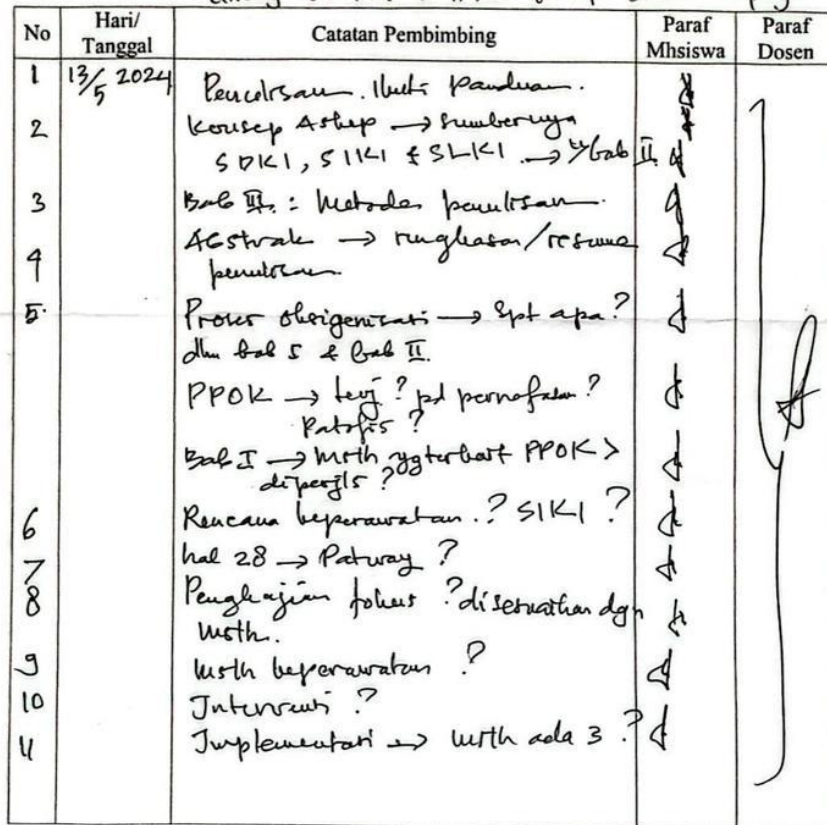 No Hari/Tanggal Catatan Pembimbing Paraf Mhsiswa Paraf Dosen
1 13/5 2024 Penulisan. Ikuti Panduan.
2 Konsep Askep → sumbernya
SDKI, SIKI & SLKI → bab II
3 Bab III : Metode penulisan
4 Abstrak → ringkasan/resume
penulisan
5. Proses oksigenisasi → Spt apa?
bab & bab II.
PPOK → terj? pd pernafasan?
Patofis?
Bab I → msth yg terkait PPOK >
diperjls?
6 Rencana keperawatan.? SIKI?
7 hal 28 → Patway?
8 Pengkajian fokus? disesuaikan dgn
msth.
9 msth keperawatan?
10 Intervensi?
11 Implementasi → msth ada 3?